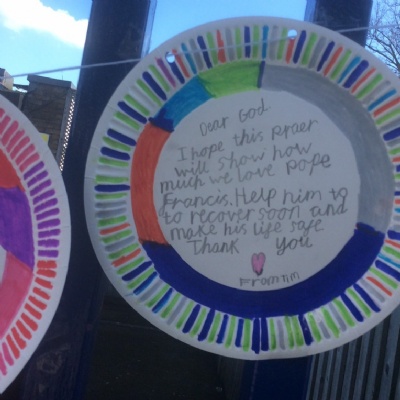 Dear God
I hope this praer
will show how
much we love pope
Francis. Help him to
to recover soon and
make his life safe.
Thank you
From Tim